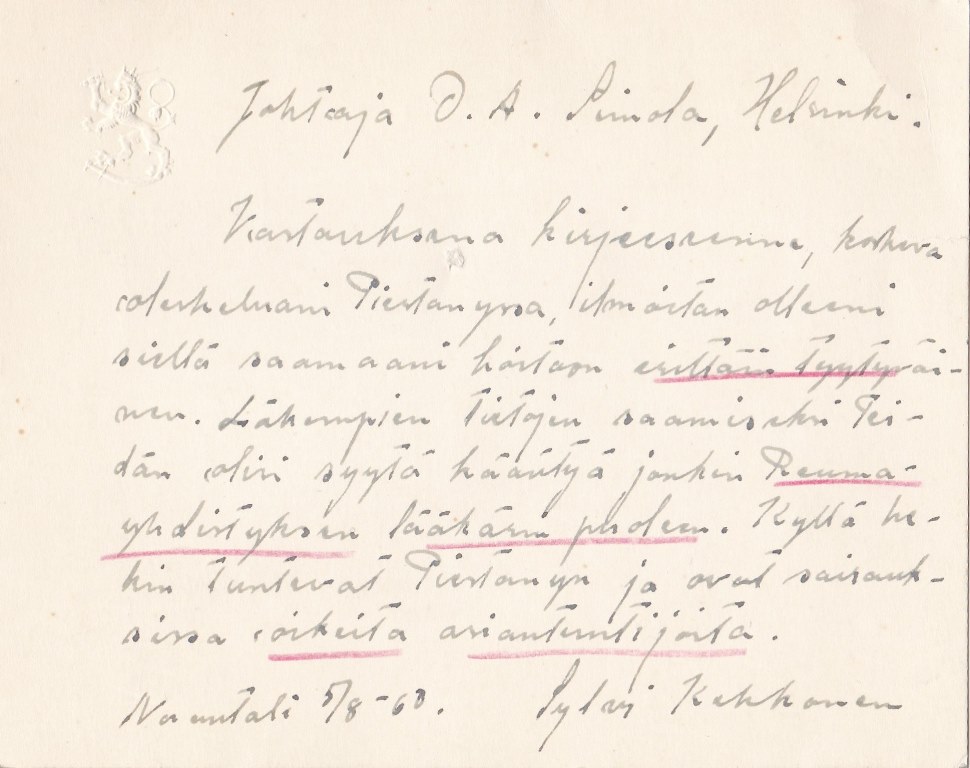 Johtaja O. A. Simola, Helsinki.
Vastauksena kirjeeseenne, koskeva
oleskeluani Piestanyssa, ilmoitan olleeni
siellä saamaani hoitoon erittäin tyytyväi-
nen. Läkempien tietojen saamiseksi Tei-
dän olisi syytä kääntyä jonkin Reuma-
yhdistyksen lääkärin puoleen. Kyllä he-
kin tuntevat Piestanyn ja ovat sairauk-
sissa oikeita asiantuntijoita.
Naantali 5/8-60. Sylvi Kekkonen